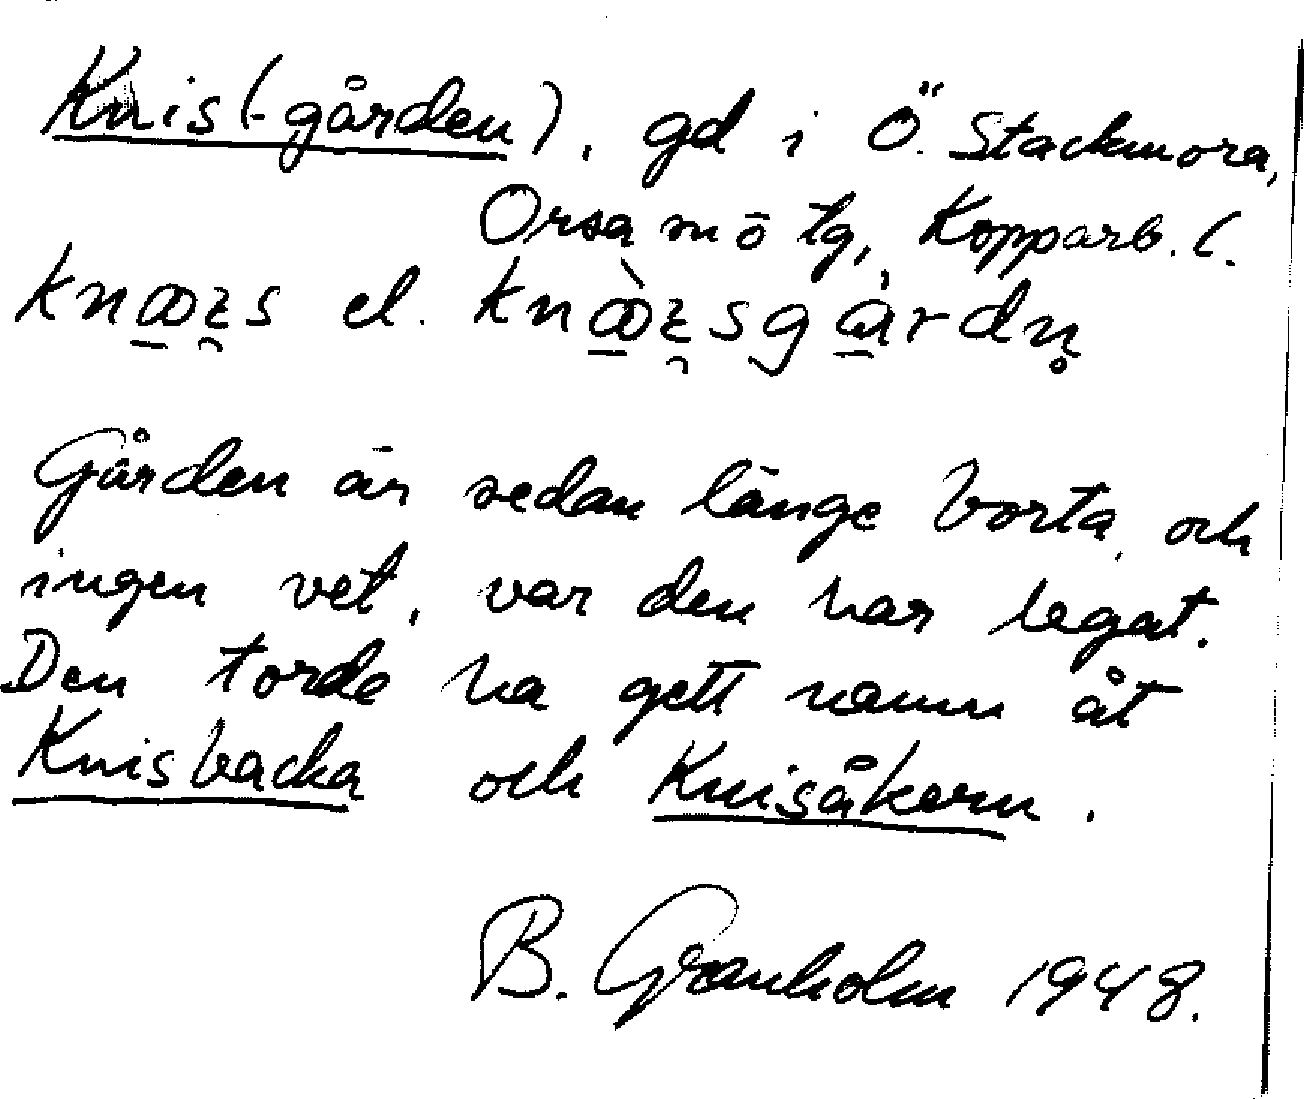 Knis(-gården), gd i Ö. Stackmora,
Orsa sn o tg, Kopparb. l.
Gården är sedan länge borta, och
ingen vet, var den har legat.
Den torde ha gett namn åt
Knisbacka och Knisåkern.
B. Granholm 1948.